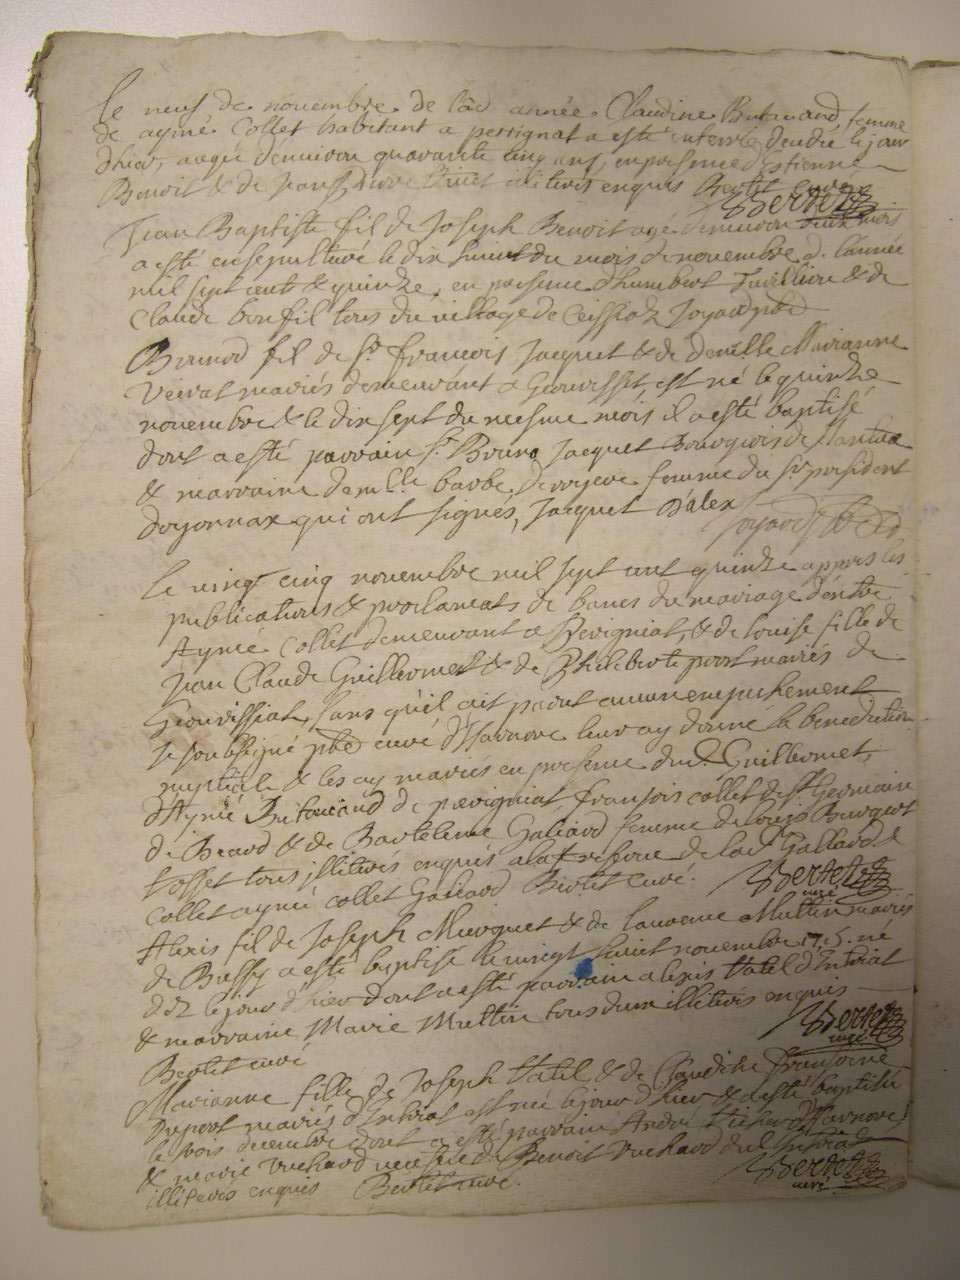 le neuf de novembre de lad année Claudine Butavand femme
de aymé Collet habitant a perrignat a esté enterrée decedée le jour
d'hier, aagée d'environ quarante cinq ans, en presence d'Estienne
Benoit & de Jean Pierre illiterés enquis Bertet curé
Bertet
Jean Baptiste fil de Joseph Benoit agé d'environ deux mois
a esté ensepulturé le dix huict du mois de novembre de l'année
mil sept cent & quinze, en presence d'humbert & de
Claude bonfil tous du village de Ceissiat Joyard pbre
Brunod fil de Sr. francois Jacquet & de demlle. Marianne
Veirat mariés demeurant a Geovisset est né le quinze
novembre & le dix sept du mesme mois il a esté baptisé
dont a esté parrain Sr. Bruno Jacquet Bourgeois de Nantua
& marraine demlle. barbe femme du Sr. president
d'oyonnax qui ont signés, Jacquet Dalex
Joyard pbre
Le vingt cinq novembre mil sept cent quinze appres les
publications & proclamats de bancs du mariage d'entre
Aymé Collet demeurant a Revigniat, & de Louise fille de
Jean Claude Guillermet & de Philiberte pont mariés de
Geovissiat, sans qu'il ait parut aucun empechement
Je soubsigné pbre curé d'Isarnore leur ay donné la benediction
nuptiale & les ay mariés en presence dud. Guillermet,
d'Aymé Butavand de pérrigniat, françois collet de St Germain
de Beard & de Bartelemie Galiard femme de Louis Bourgeot
tous illiterés enquis a la refserve de lad Galiard &
Collet aymé collet Galiard Bertet curé.
Bertet
curé
Alexis fil de Joseph Muoquet & de laurence Multin mariés
de Bussy a esté baptisé le vingt huict novembre 1715. né
dez le jour d'hier dont a esté parrain alexis Vatel d'Intriat
& marraine Marie Multin tous deux illiterés enquis
Bertet curé
Bertet
curé
Marianne fille de Joseph Vatel & de Claudine françoise
Dupont mariés d'Intriat est née le jour d'hier & a esté baptisée
le trois decembre dont a esté parrain André d'Isarnore
& marie Vuchard Benoit Vuchard dud Intriat
illiterés enquis Bertet curé.
Bertet
curé